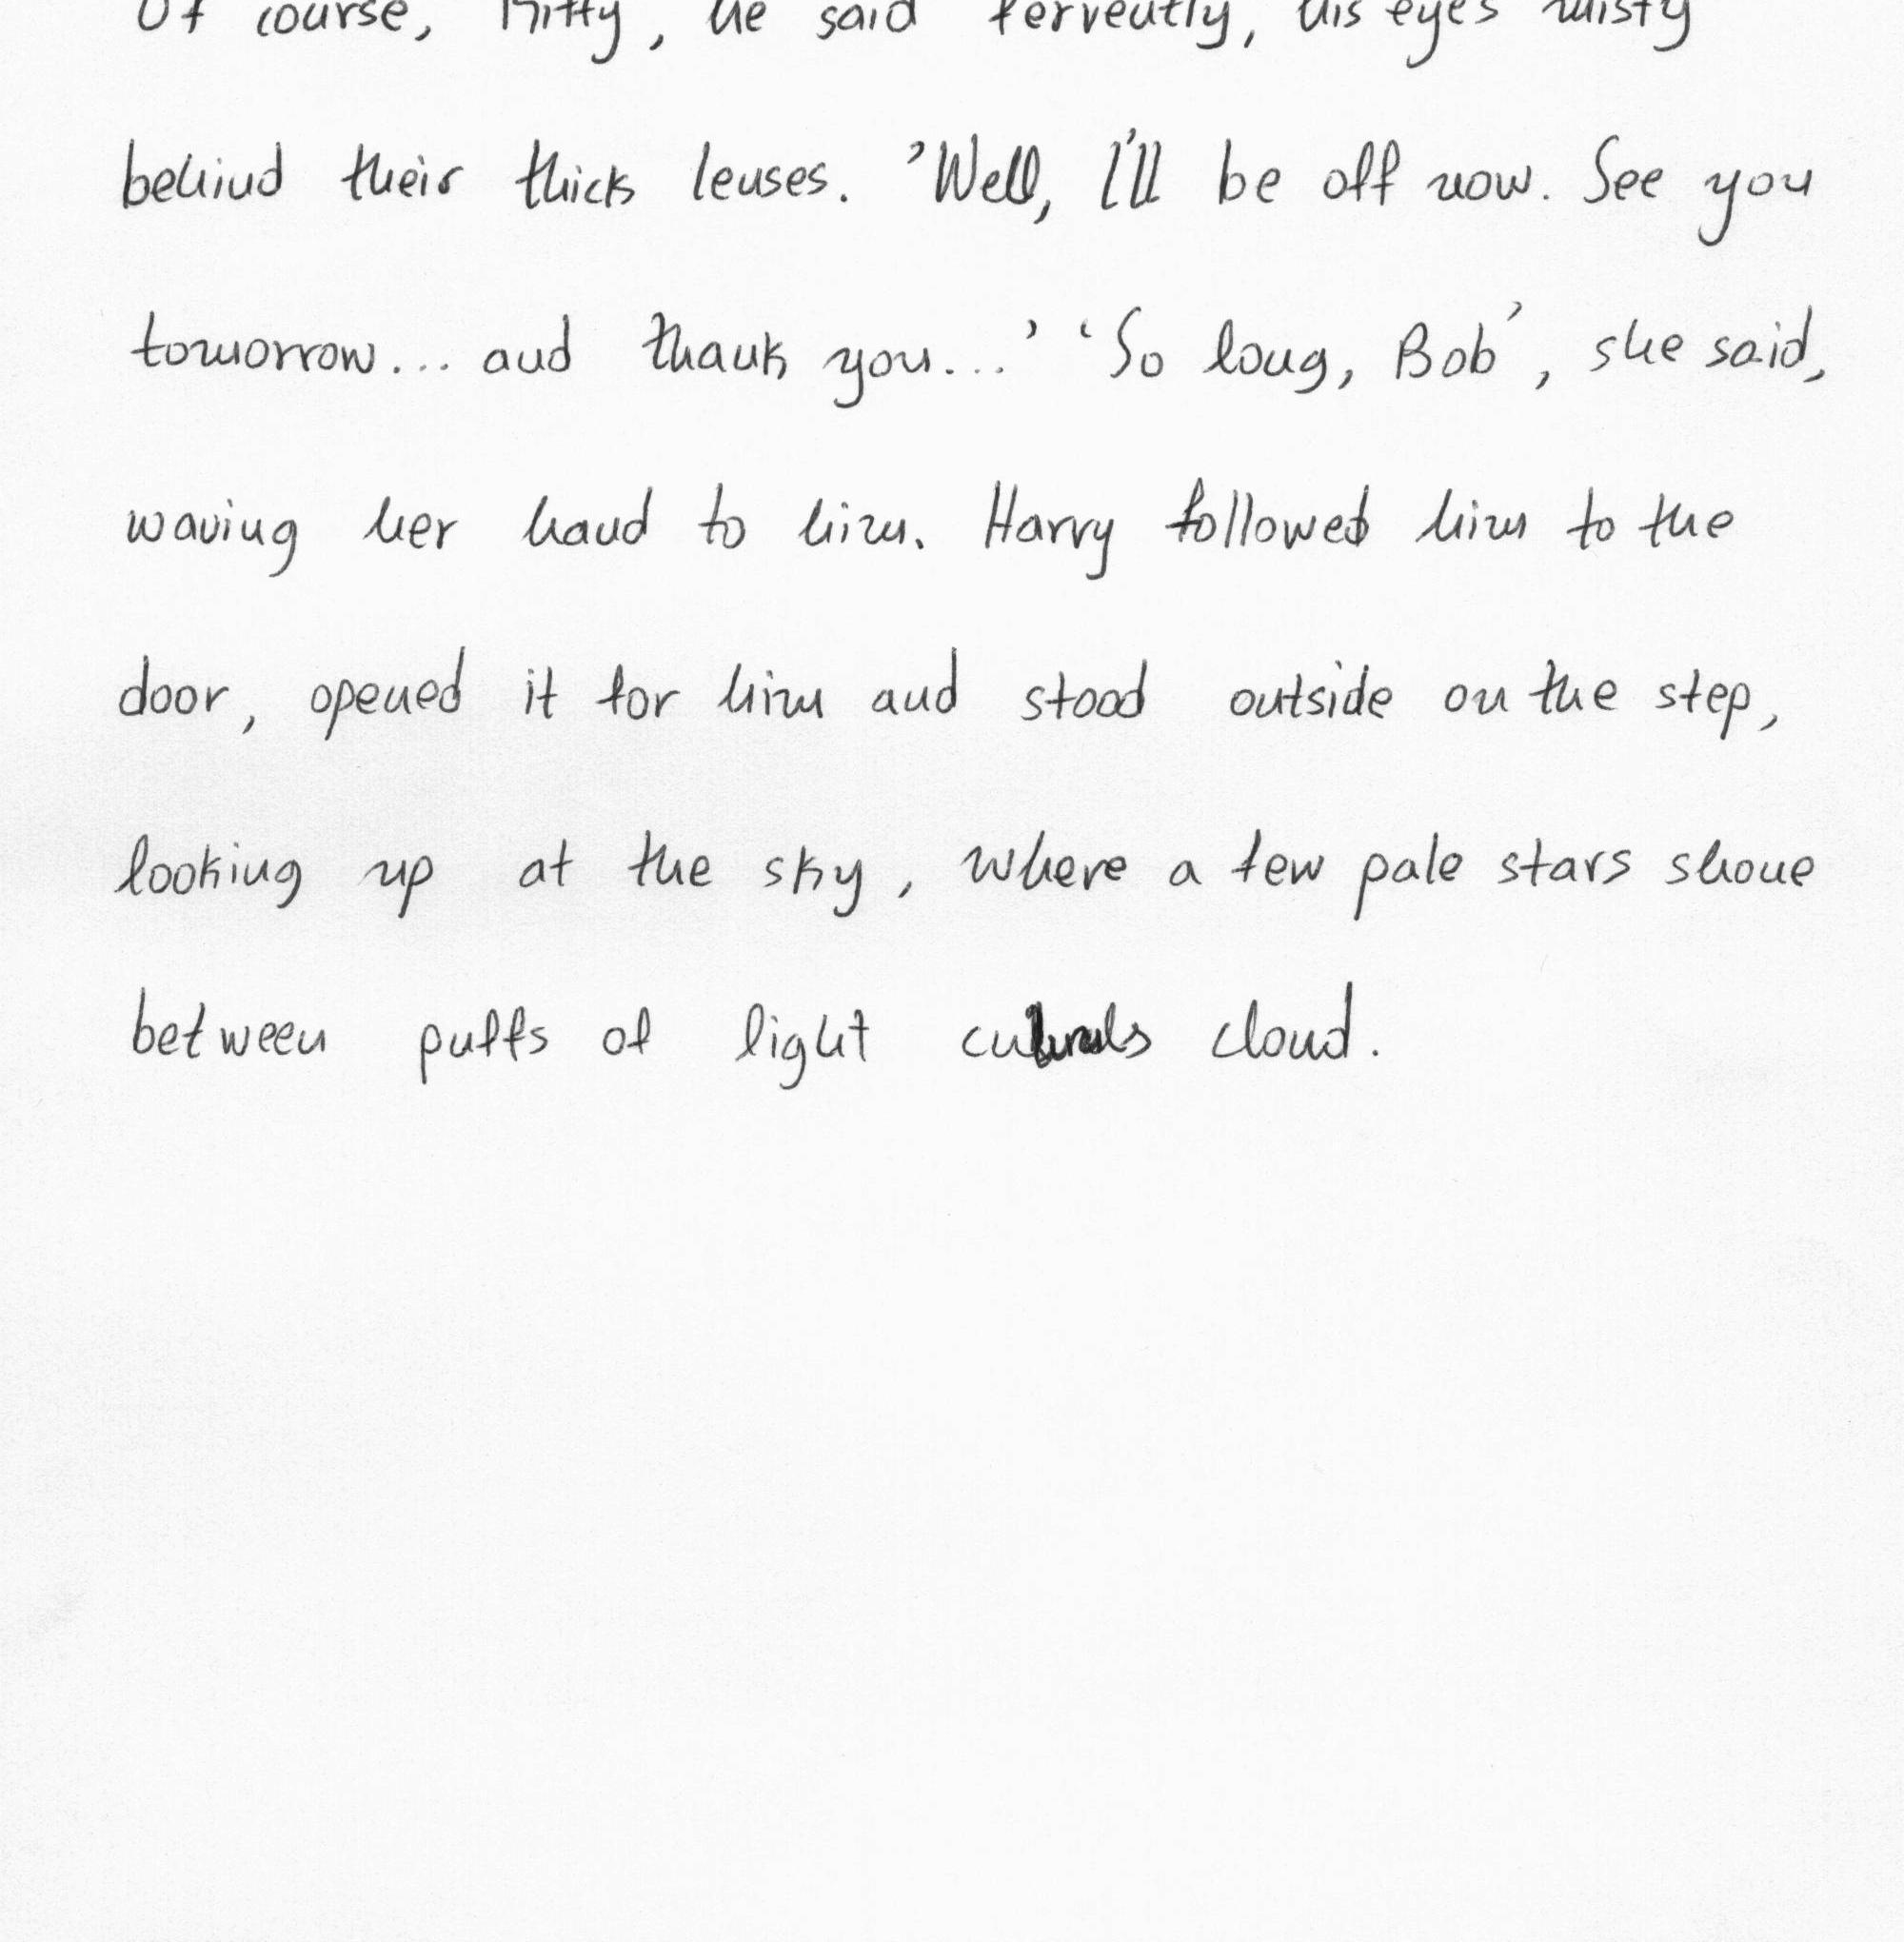 Of course, Kitty, he said fervently, his eyes misty
behind their thick lenses. 'Well, I'll be off now. See you
tomorrow... and thank you...' 'So long, Bob', she said,
waving her hand to him. Harry followed him to the
door, opened it for him and stood outside on the step,
looking up at the sky, where a few pale stars shone
between puffs of light cloud.